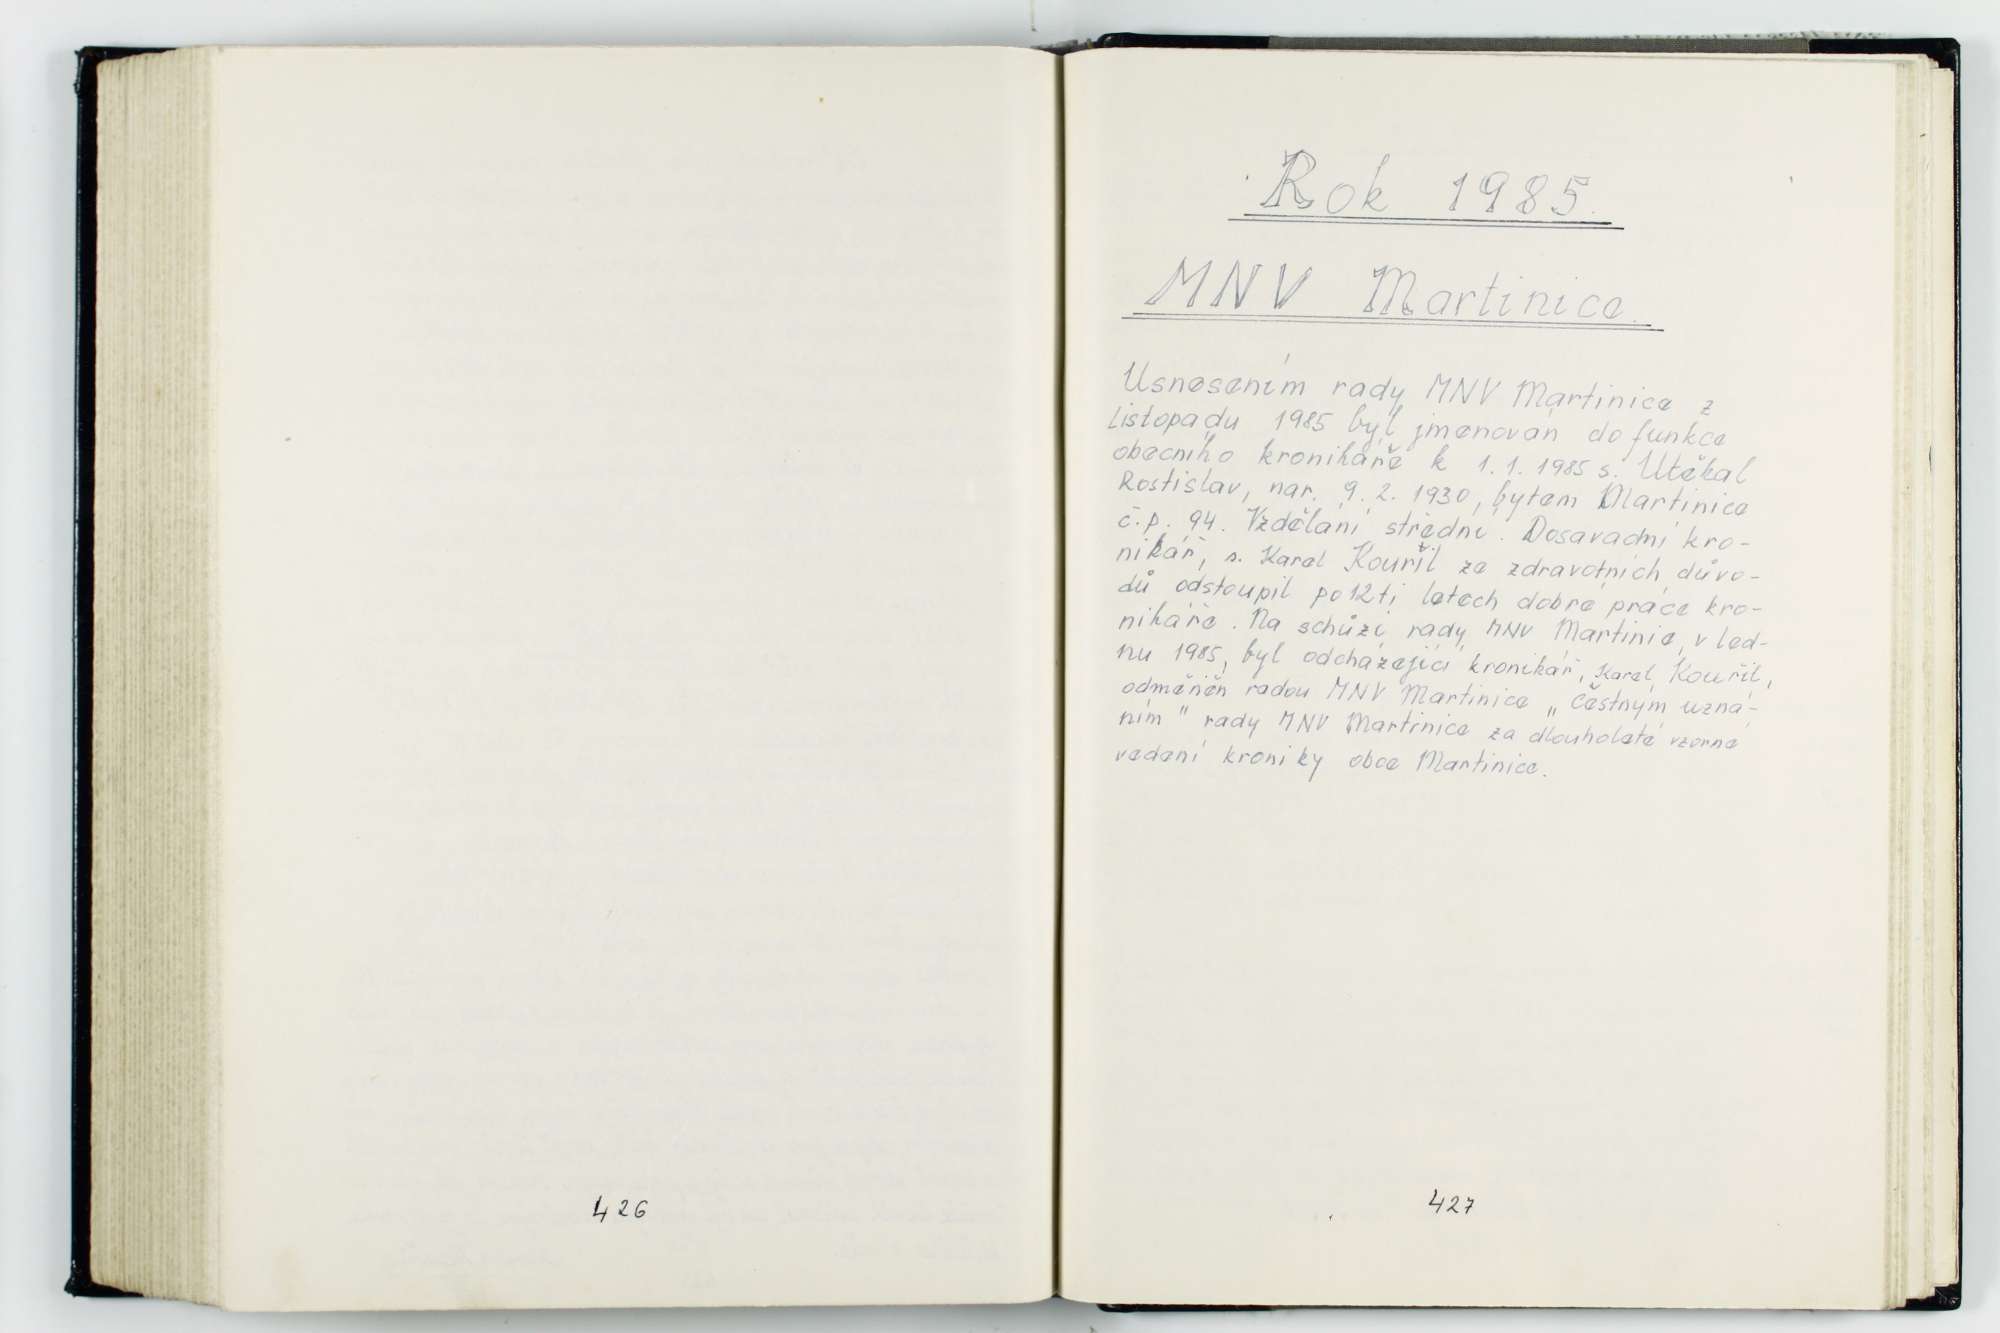 Rok 1985.
MNV Martinice.
Usnesením rady MNV Martinice z
listopadu 1985 byl jmenován do funkce
obecního kronikáře k 1.1.1985 s. Utěkal
Rostislav, nar. 9.2.1930, bytem Martinice
č.p. 94. Vzdělání střední. Dosavadní kro-
nikář, s. Karel Kouřil ze zdravotních důvo-
dů odstoupil po 12ti letech dobré práce kro-
nikáře. Na schůzi rady MNV Martinic, v led-
nu 1985, byl odcházející kronikář, Karel Kouřil,
odměněn radou MNV Martinice „ Čestným uzná-
ním " rady MNV Martinice za dlouholeté vzorné
vedení kroniky obce Martinice.
426
427